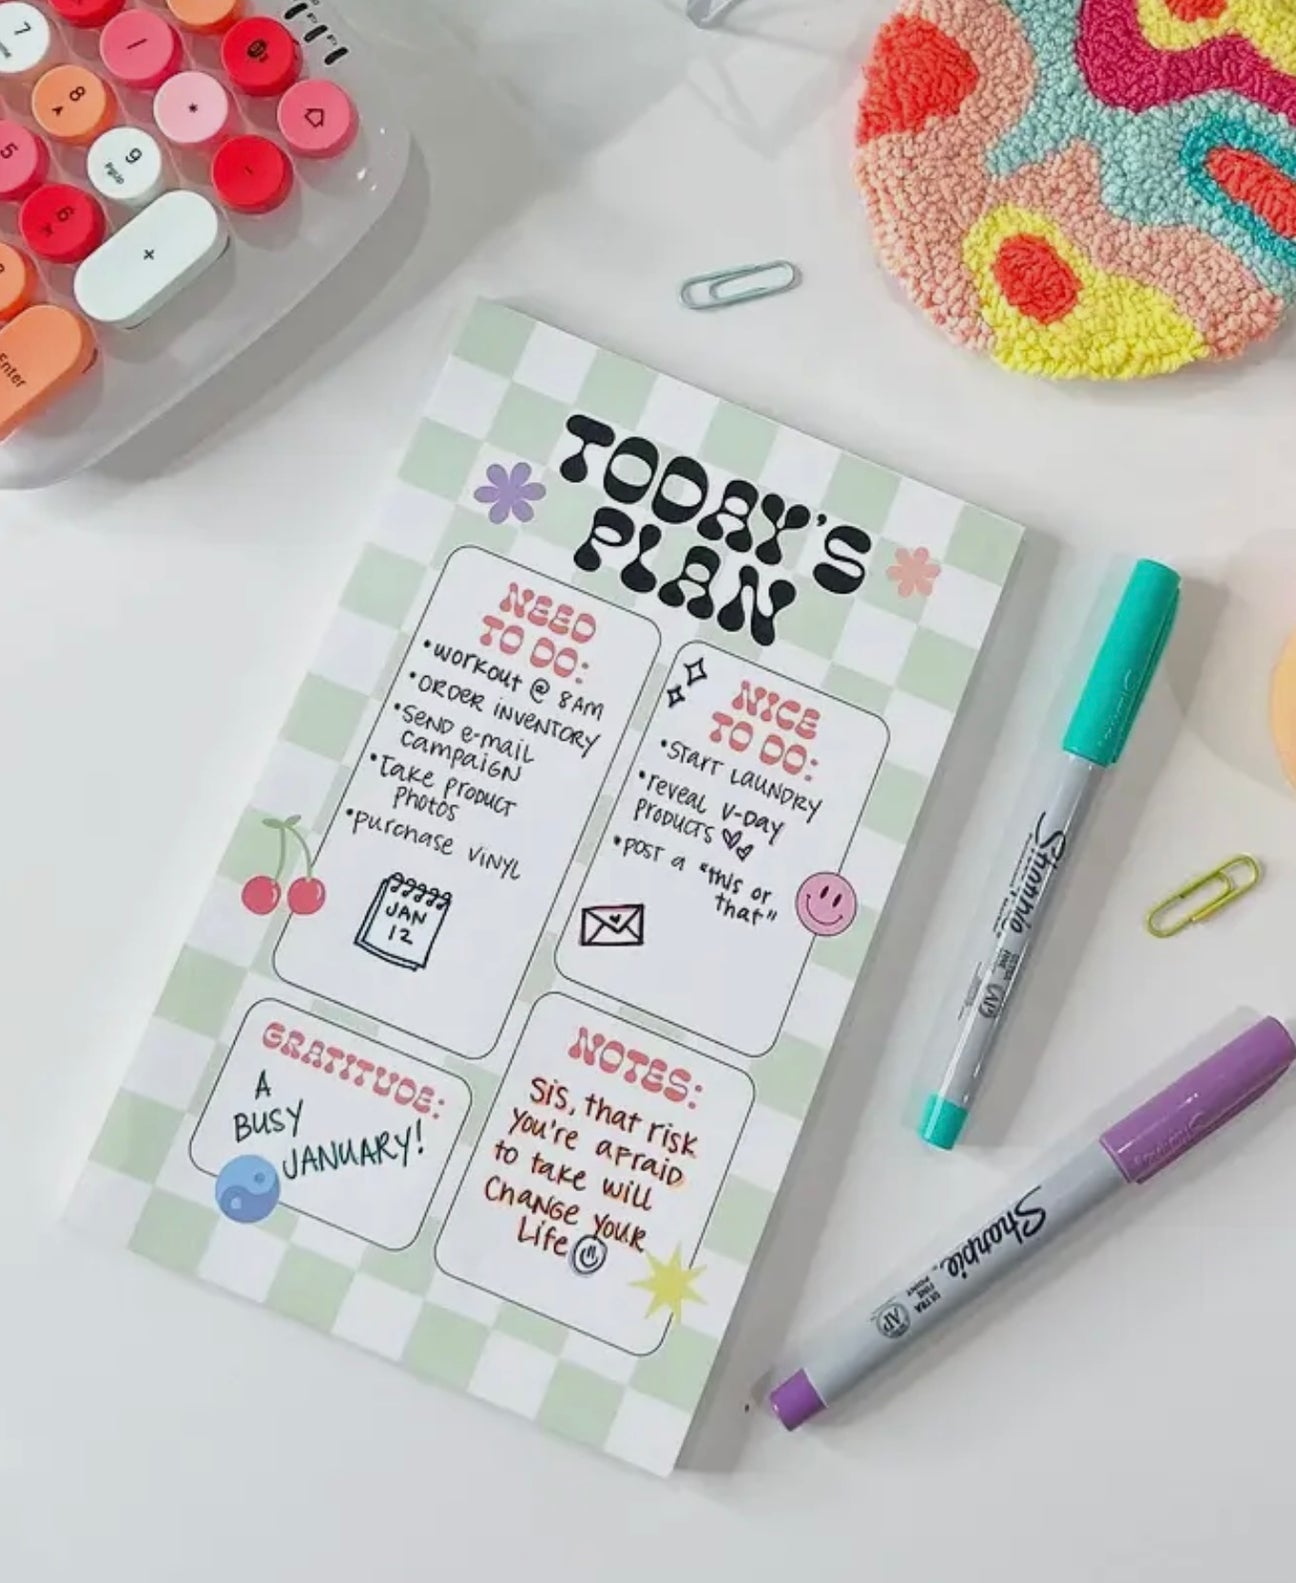 7
8
9
PgUp
5
6
*
-
+
Enter
TODAY'S
PLAN
NEED
TO DO:
•workout @ 8AM
•ORDER INVENTORY
•SEND e-mail
campaign
•Take product
photos
•purchase vinyl
JAN
12
NICE
TO DO:
•Start laundry
•reveal v-day
products
•post a "this or
that"
GRATITUDE:
A
BUSY
JANUARY!
NOTES:
Sis, that risk
you're afraid
to take will
Change your
Life
Sharpie
ULTRA
FINE
AP
Sharpie
ULTRA
FINE
POINT
AP